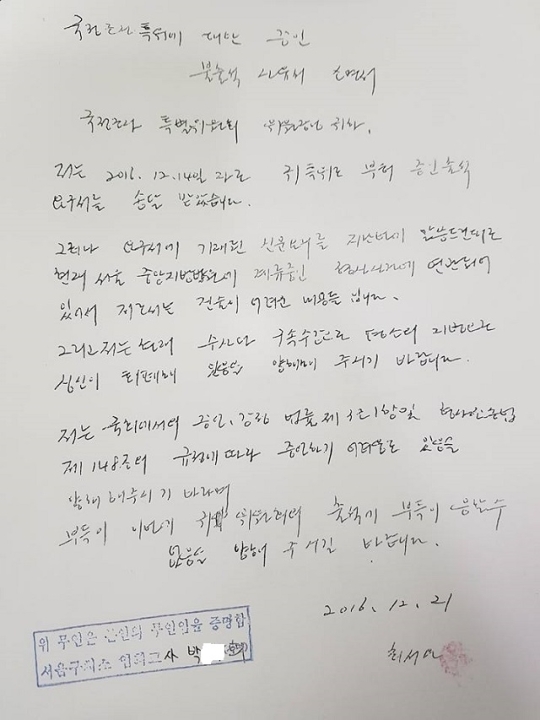 국정조사 특위에 대한 증인
불출석 사유서 소명서
국정조사 특별위원회 위원장님 귀하.
저는 2016. 12. 14일 자로 귀 특위로 부터 증인출석
요구서를 송달 받았습니다.
그러나 요구서에 기재된 신문 지난번에 말씀드린대로
현재 서울 중앙지방법원에 계류중인 형사사건에 연관되어
있어서 저로서는 진술이 어려운 내용들 입니다.
그리고 저는 현재 수사와 구속수감으로 평소의 지병으로
심신이 피폐해 있음을 양해해 주시기 바랍니다.
저는 국회에서의 증언, 감정 법률 제3조1항 및 형사소송법
제148조의 규정에 따라 증언하기 어려움로 있음을
양해 해주시기 바라며
부득이 이번에 귀 위원회의 출석에 부득이 응할수
없음을 양해 주시길 바랍니다.
2016. 12. 21
최서원
위 무인은 본인의 무인임을 증명함
서울구치소 사 박